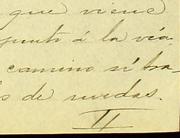 que viene
punto á la vía
camino si ha
s de ruedas.
II